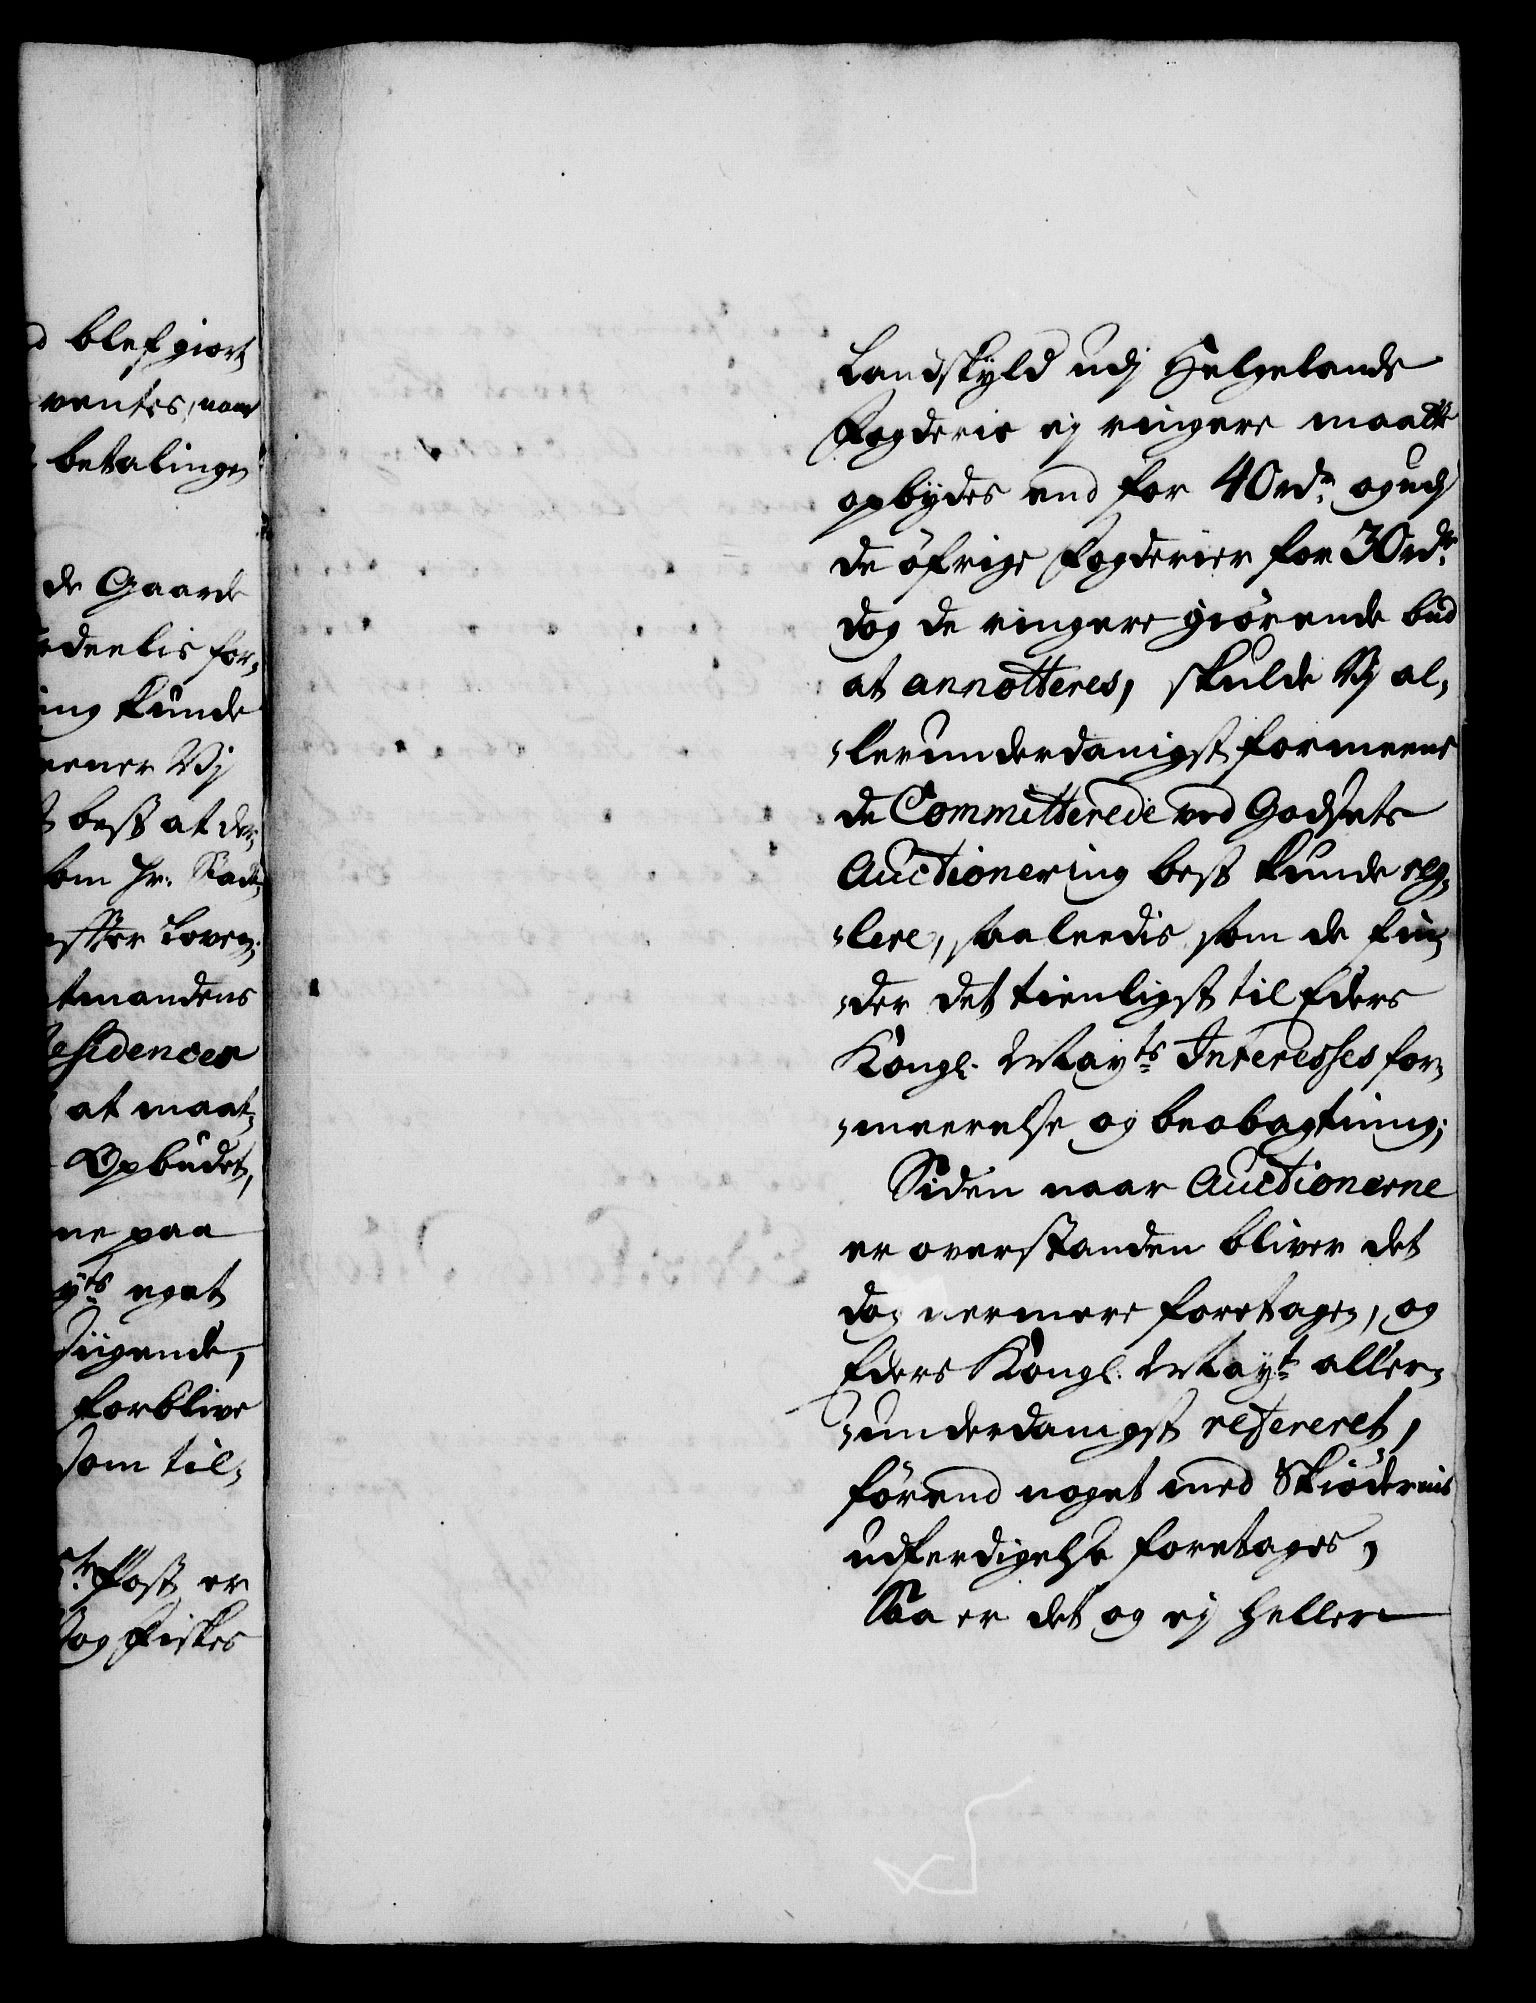 blef giort
ventes, naar
betalingen
de Gaarde
deelis for-
ing kunde
meener Vi
best at der-
som Hr. Stadt-
effter Loven
tmandens
esidencer
at maat-
Opbudet,
ne paa
yts eget
siigende,
forblive
som til-
Post er
og Fiskes
Landskyld udj Helgelands
Fogderie ej ringere maatte
opbÿdes end for 40 rdr. og udj
de öfrige Fogderier for 30 rdr.
dog de ringere giörende bud
at annotteres, skulde Vj al-
-lerunderdanigst formeene
de Committerede ved Godsets
Auctionering best kunde reg-
-lere, saaleedis som de fin-
-der det tienligst til Eders
Kongl. Mayts Interesses for-
-meerelse og beobagtning;
Siden naar Auctionerne
er overstanden bliver det
dog nermere foretagen, og
Eders Kongl. Mayt aller-
-underdanigst refereret,
förend noget med Skiödernis
udferdigelse foretages,
Saa er det og ej heller